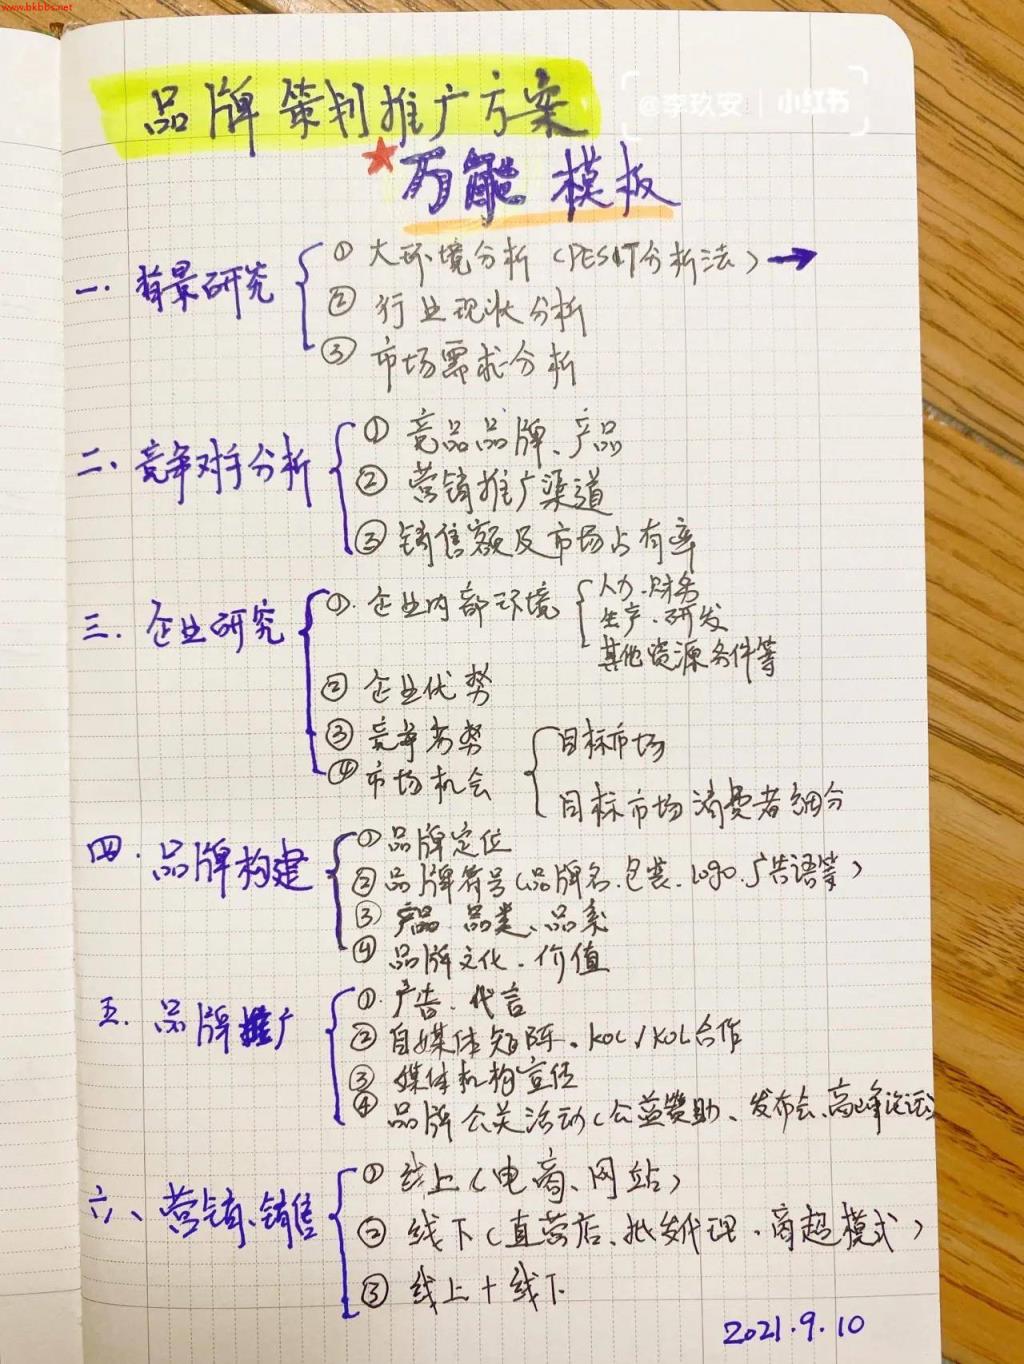 www.bkbbs.net
品牌策划推广方案
@李玖安 | 小红书
万能模板
一. 背景研究
① 大环境分析（PEST分析法）→
② 行业现状分析
③ 市场需求分析
二、竞争对手分析
① 竞品品牌、产品
② 营销推广渠道
③ 销售额及市场占有率
三. 企业研究
①. 企业内部环境
人力.财务
生产.研发
其他资源条件等
② 企业优势
③ 竞争劣势
④ 市场机会
目标市场
目标市场消费者细分
四. 品牌构建
① 品牌定位
② 品牌符号（品牌名.包装.logo.广告语等）
③ 产品.品类、品系
④ 品牌文化.价值
五. 品牌推广
①. 广告.代言
② 自媒体矩阵.KOC/KOL合作
③ 媒体机构宣传
④ 品牌公关活动（公益赞助、发布会、高峰论坛）
六、营销、销售
① 线上（电商、网站）
② 线下（直营店、批发代理、商超模式）
③ 线上+线下
2021.9.10